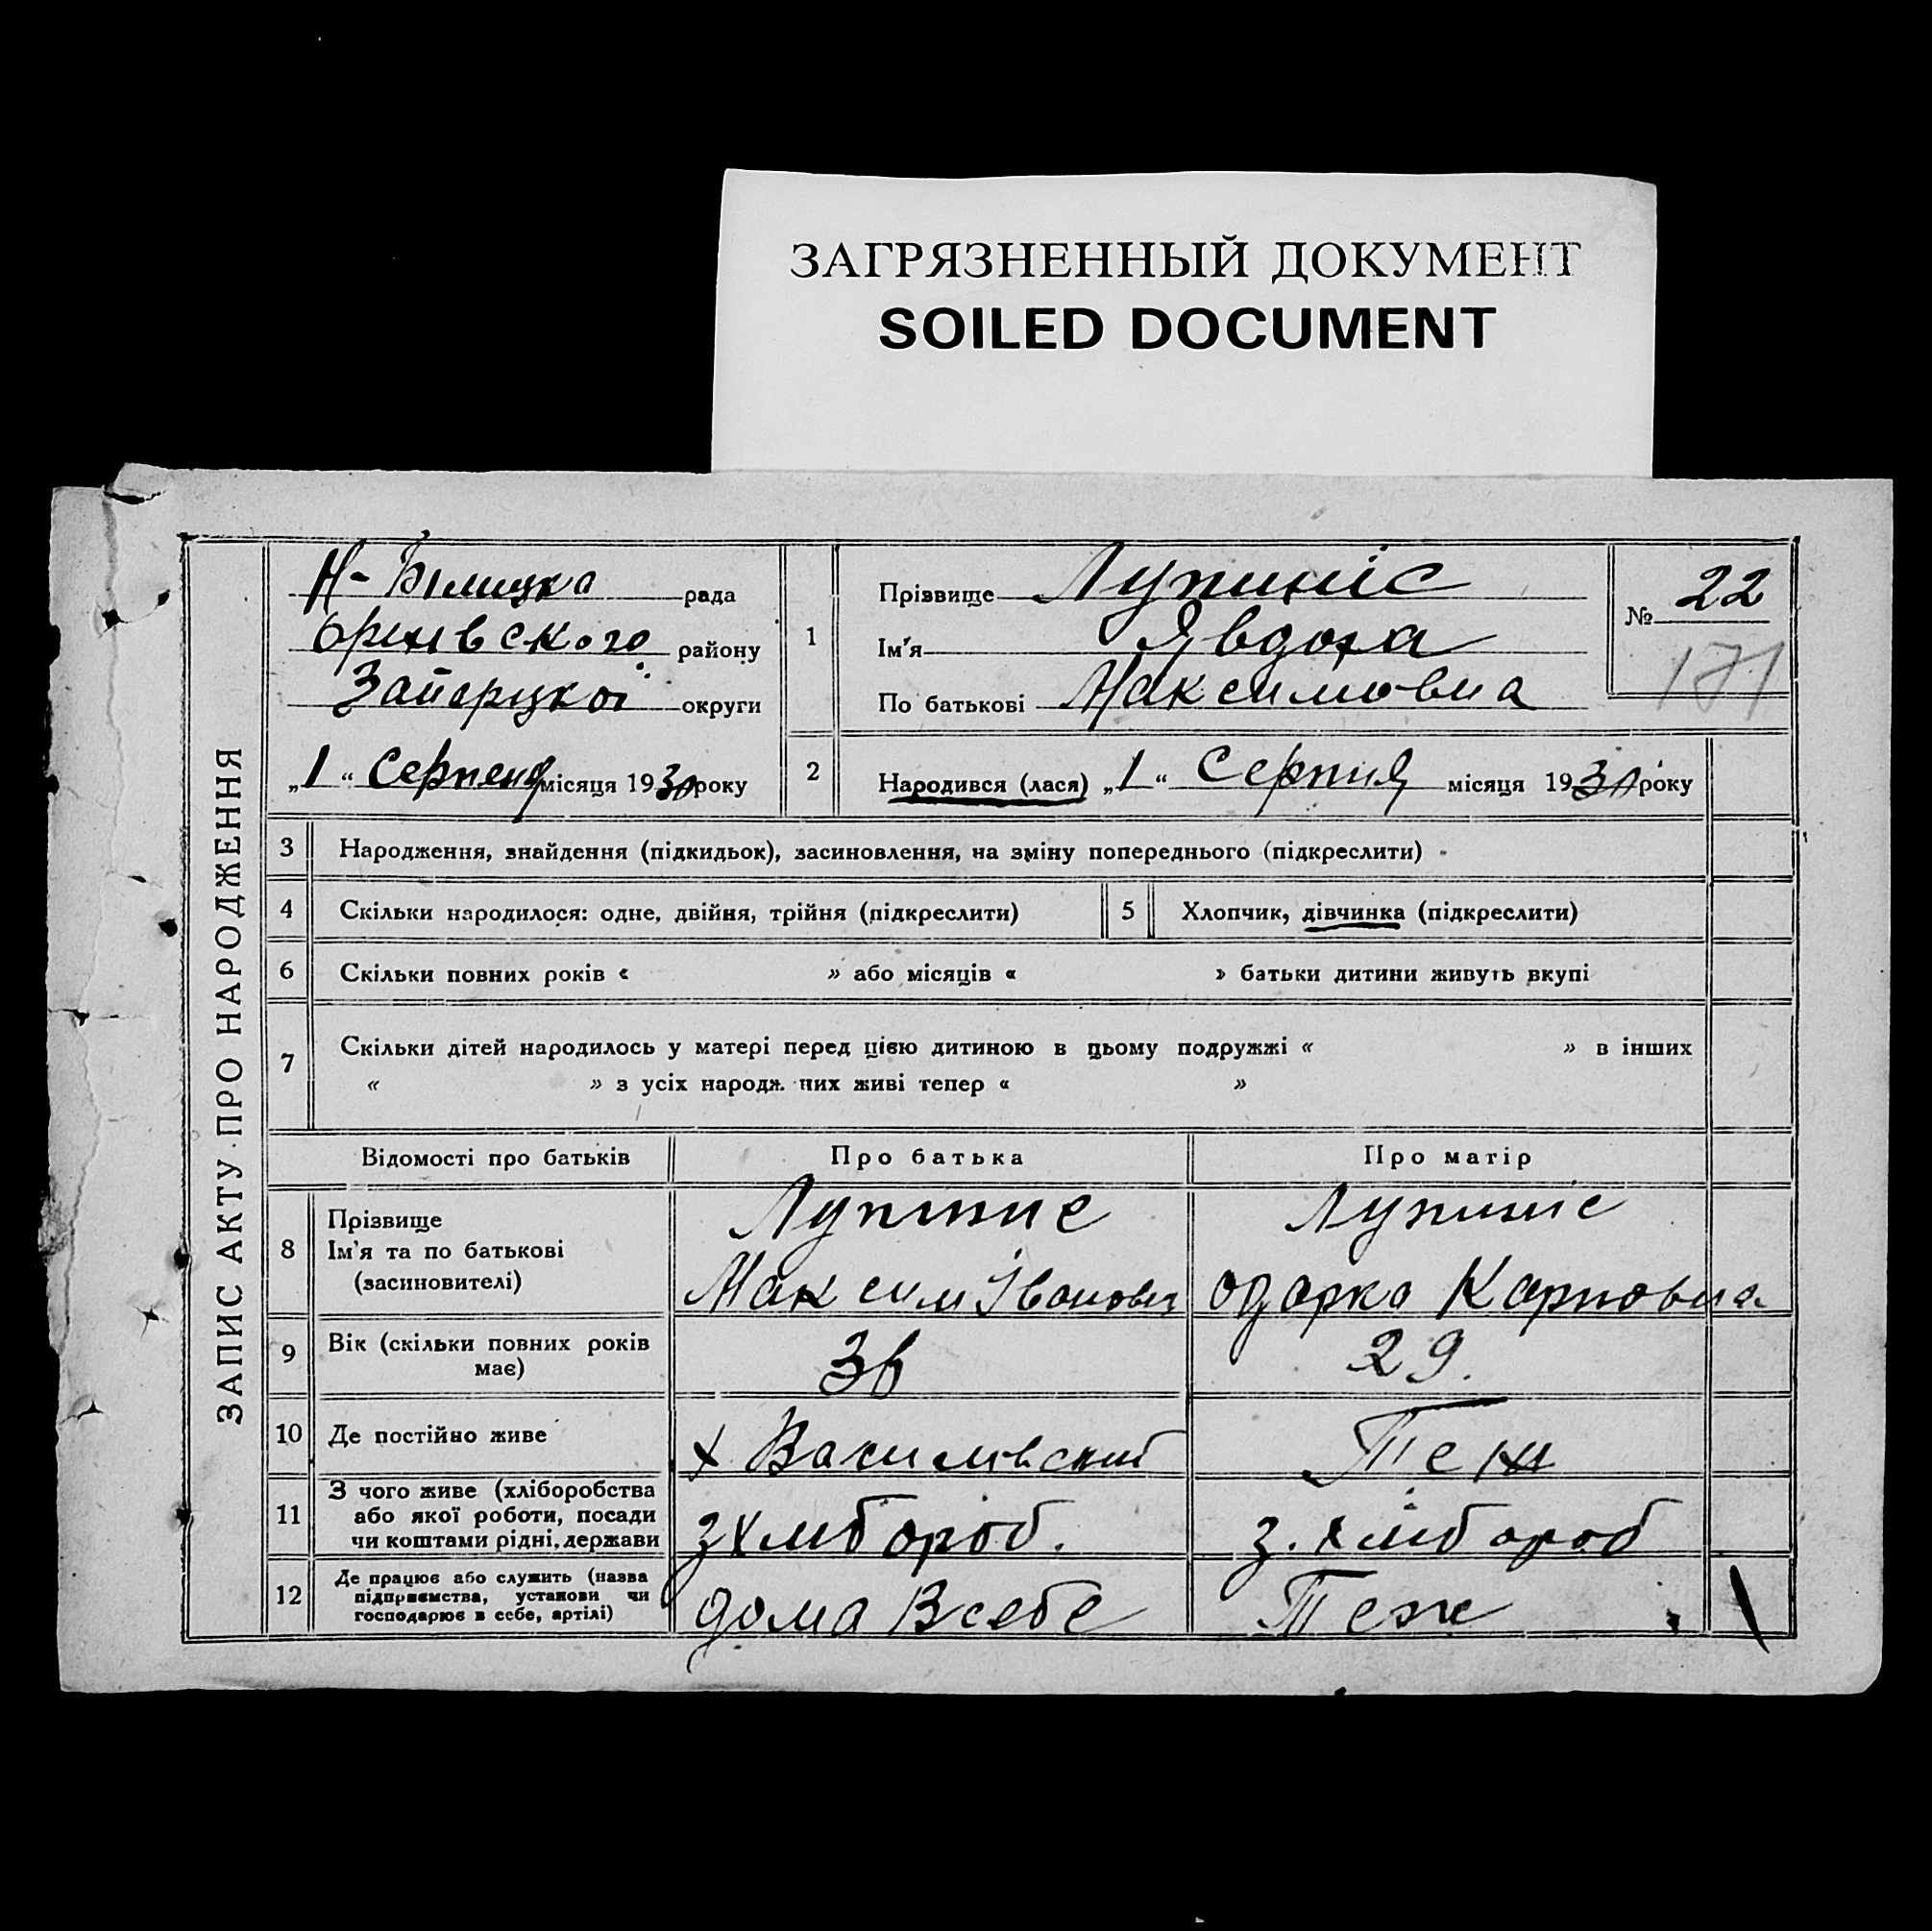 ЗАГРЯЗНЕННЫЙ ДОКУМЕНТ
SOILED DOCUMENT
ЗАПИС АКТУ ПРО НАРОДЖЕННЯ
Н-Білицка рада
району
округи
„1“ Серпеня місяця 1930 року
1
Прізвище Лупиніс
Ім'я Явдоха
По батькові Максимовна
№ 22
171
2
Народився (лася) „1“ Серпня місяця 1930 року
3 Народження, знайдення (підкидьок), засиновлення, на зміну попереднього (підкреслити)
4 Скільки народилося: одне, двійня, трійня (підкреслити)
5 Хлопчик, дівчинка (підкреслити)
6 Скільки повних років « » або місяців « » батьки дитини живуть вкупі
7 Скільки дітей народилось у матері перед цією дитиною в цьому подружжі « » в інших
« » з усіх народж них живі тепер « »
Відомості про батьків Про батька Про матір
8
Прізвище
Ім'я та по батькові
(засиновителі)
Лупинис
Максим Іванович
Лупинис
одарка Карповна
9
Вік (скільки повних років
має)
36
29.
10 Де постійно живе
х Васильвский
Теж
11
З чого живе (хліборобства
або якої роботи, посади
чи коштами рідні, держави
з хлібороб.
з. хлібороб
12
Де працює або служить (назва
підприємства, установи чи
господарює в себе, артілі)
дома В себе
Теж